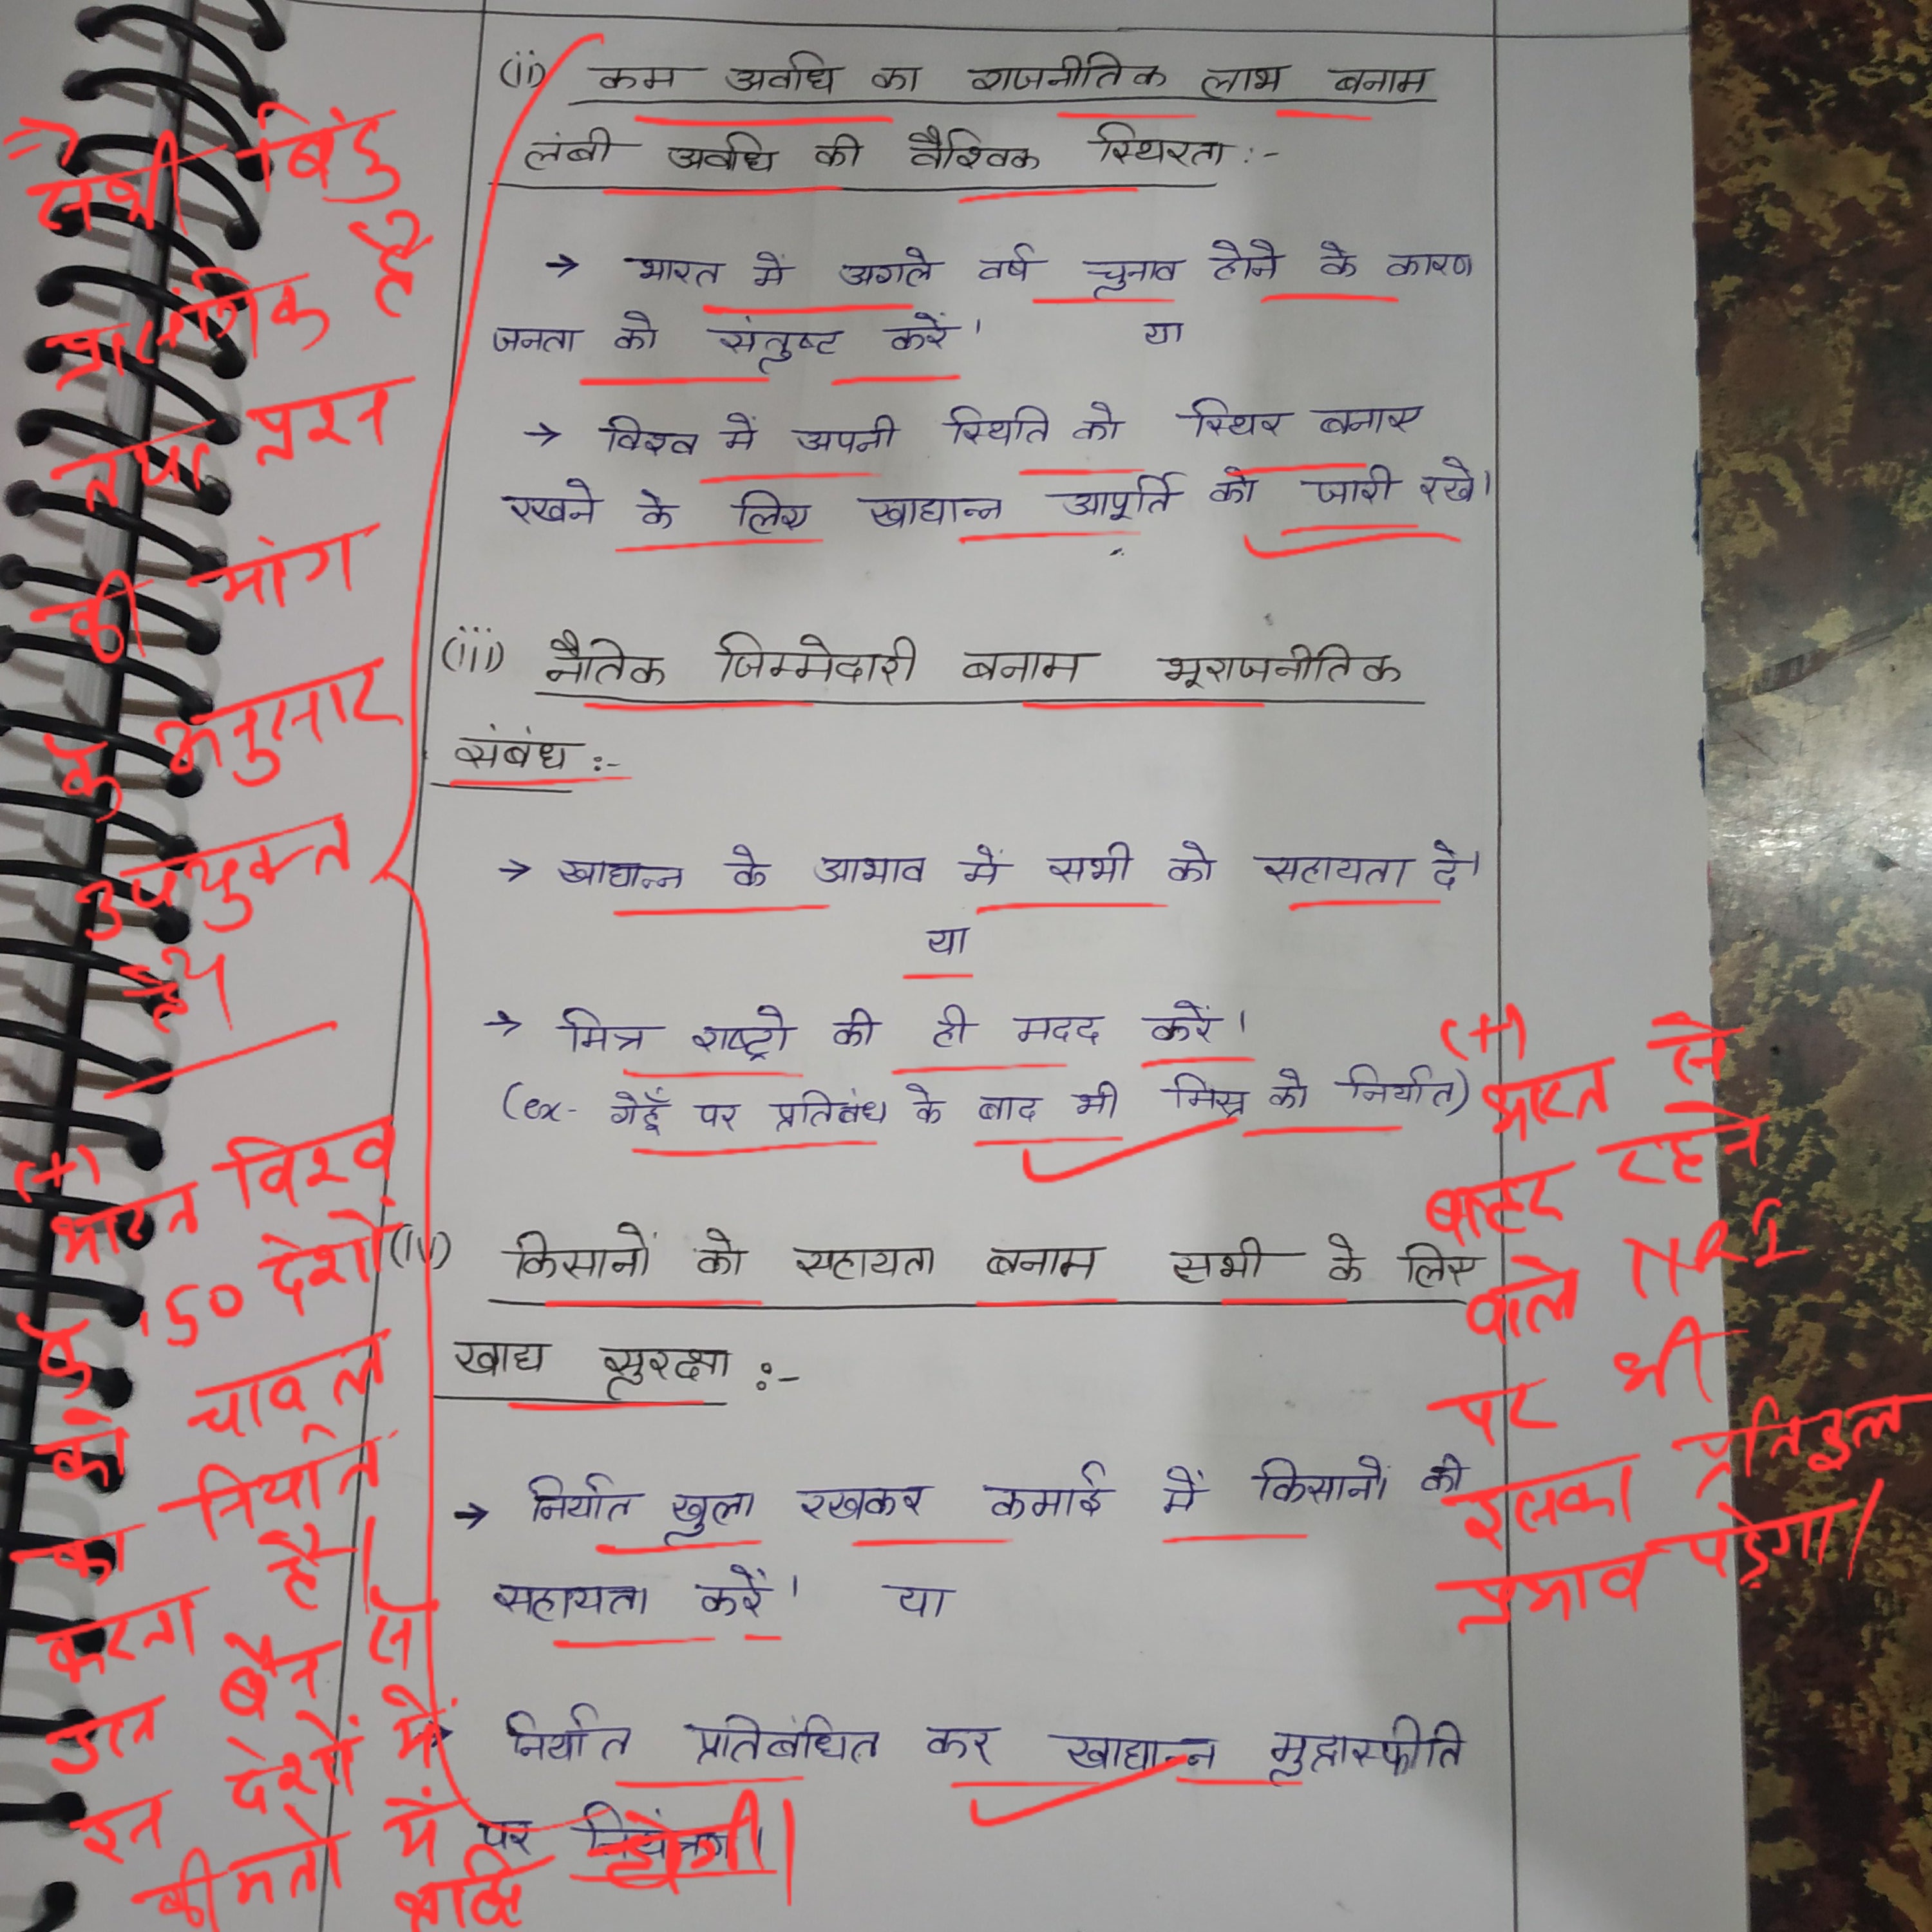 (ii) कम अवधि का राजनीतिक लाभ बनाम
लंबी अवधि की वैश्विक स्थिरता :-
→ भारत में अगले वर्ष चुनाव होने के कारण
जनता को संतुष्ट करें। या
→ विश्व में अपनी स्थिति को स्थिर बनाए
रखने के लिए खाद्यान्न आपूर्ति को जारी रखे।
(iii) नैतिक जिम्मेदारी बनाम भूराजनीतिक
संबंध :-
→ खाद्यान्न के आभाव में सभी को सहायता दे।
या
→ मित्र राष्ट्रो की ही मदद करें।
(ex- गेहूँ पर प्रतिबंध के बाद भी मिस्र को निर्यात)
(iv) किसानों को सहायता बनाम सभी के लिए
खाद्य सुरक्षा :-
→ निर्यात खुला रखकर कमाई में किसानों की
सहायता करें। या
→ निर्यात प्रतिबंधित कर खाद्यान्न मुद्रास्फीति
पर नियंत्रण।
⇒ सभी बिंदु
प्रासंगिक है
तथा प्रश्न
की मांग
के अनुसार
उपयुक्त
है।
(+)
भारत विश्व
के 150 देशों
को चावल
का निर्यात
करता है।
उत्त बैन से
इन देशों में
कीमतो में वृद्धि होगी।
(+)
भारत से
बाहर रहने
वाले NRI
पर भी
इसका प्रतिकूल
प्रभाव पड़ेगा।